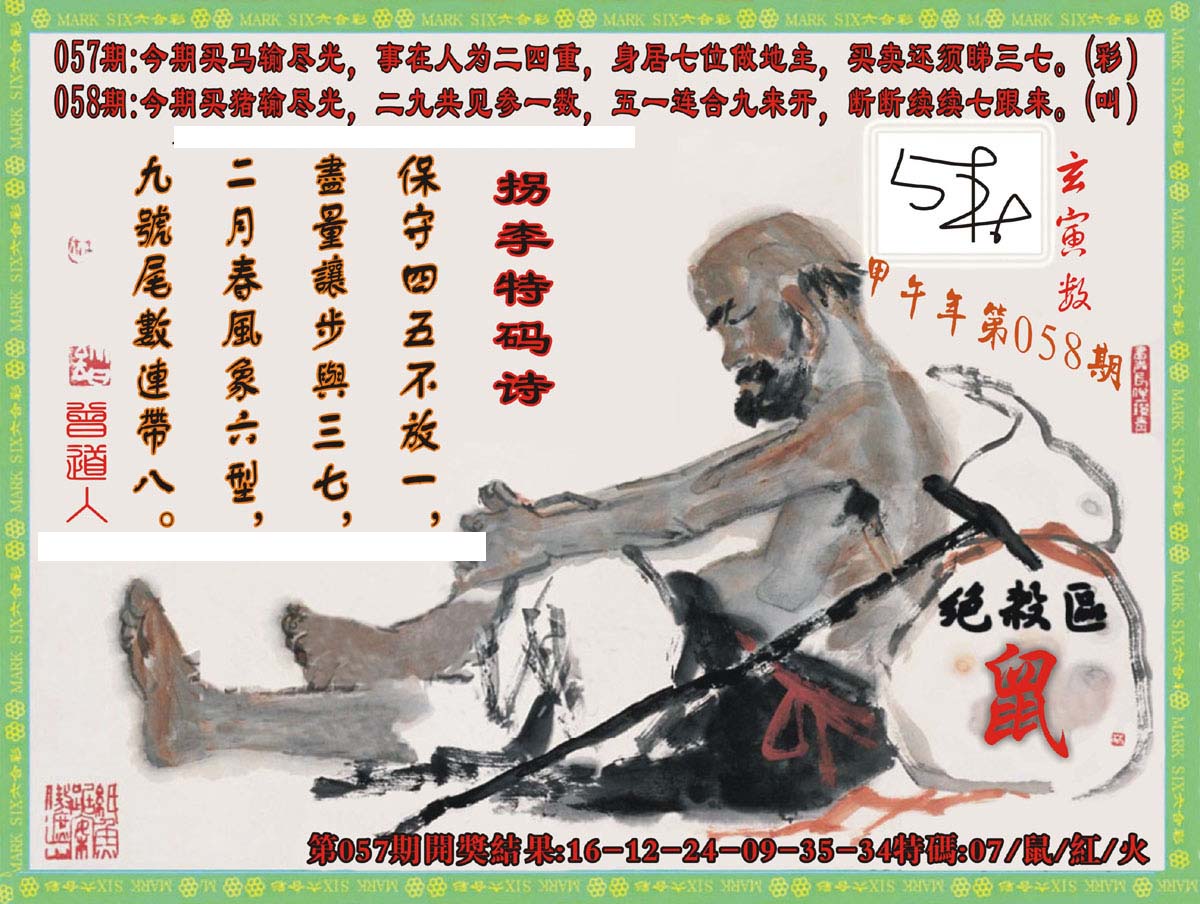 MARK SIX六合彩 MARK SIX六合彩 MARK SIX六合彩 MARK SIX六合彩 MARK SIX六合彩 MARK SIX六合彩
057期:今期买马输尽光，事在人为二四重，身居七位做地主，买卖还须睇三七。(彩)
058期:今期买猪输尽光，二九共见参一数，五一连合九来开，断断续续七跟来。(叫)
玄寅数
甲午年第058期
拐李特码诗
保守四五不放一，
盡量讓步與三七，
二月春風象六型，
九號尾數連帶八。
曾道人
绝殺區
鼠
第057期開獎結果:16-12-24-09-35-34特碼:07/鼠/紅/火